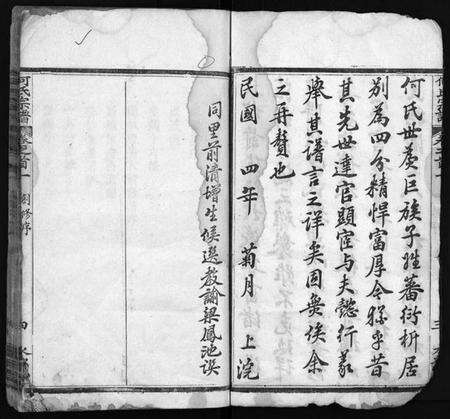 何氏世為巨族子姓蕃衍析居
別為四分精悍富厚今猶乎昔
其先世達官顯宦与夫懿行義
舉其譜言之詳矣固無俟余
之再贅也
民國 四年 菊月 上浣
同里前清增生候選教諭梁鳳池謨
何氏宗譜
卷之首